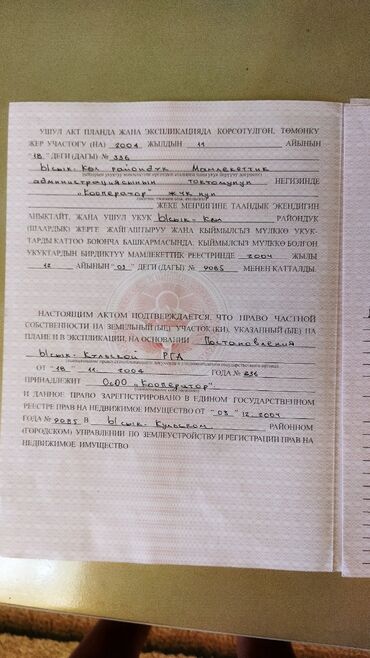 УШУЛ АКТ ПЛАНДА ЖАНА ЭКСПЛИКАЦИЯДА КӨРСӨТҮЛГӨН, ТӨМӨНКҮ
ЖЕР УЧАСТОГУ (НА) 2004 ЖЫЛДЫН 11 АЙЫНЫН
"18" ДЕГИ (ДАГЫ) № 336
Ысык-Көл райондук Мамлекеттик
администрациясынын токтомунун НЕГИЗИНДЕ
"Кооператор" ЖЧК нун
ЖЕКЕ МЕНЧИГИНЕ ТААНДЫК ЭКЕНДИГИН
АНЫКТАЙТ, ЖАНА УШУЛ УКУК Ысык-Көл РАЙОНДУК
(ШААРДЫК) ЖЕРГЕ ЖАЙГАШТЫРУУ ЖАНА КЫЙМЫЛСЫЗ МҮЛККӨ УКУК-
ТАРДЫ КАТТОО БОЮНЧА БАШКАРМАСЫНДА, КЫЙМЫЛСЫЗ МҮЛККӨ БОЛГОН
УКУКТАРДЫН БИРДИКТҮҮ МАМЛЕКЕТТИК РЕЕСТРИНДЕ 2004 ЖЫЛЫ
12 АЙЫНЫН "03" ДЕГИ (ДАГЫ) № 9085 МЕНЕН КАТТАЛДЫ.
НАСТОЯЩИМ АКТОМ ПОДТВЕРЖДАЕТСЯ, ЧТО ПРАВО ЧАСТНОЙ
СОБСТВЕННОСТИ НА ЗЕМЕЛЬНЫЙ (ЫЕ) УЧАСТОК (КИ), УКАЗАННЫЙ (ЫЕ) НА
ПЛАНЕ И В ЭКСПЛИКАЦИИ, НА ОСНОВАНИИ Постановления
Ысык-Кульской РГА
ОТ "18" 11. 2004 ГОДА № 336
ПРИНАДЛЕЖИТ ОсОО "Кооператор"
И ДАННОЕ ПРАВО ЗАРЕГИСТРИРОВАНО В ЕДИНОМ ГОСУДАРСТВЕННОМ
РЕЕСТРЕ ПРАВ НА НЕДВИЖИМОЕ ИМУЩЕСТВО ОТ "03" 12. 2004
ГОДА № 9085 В Ысык-Кульском РАЙОННОМ
(ГОРОДСКОМ) УПРАВЛЕНИИ ПО ЗЕМЛЕУСТРОЙСТВУ И РЕГИСТРАЦИИ ПРАВ НА
НЕДВИЖИМОЕ ИМУЩЕСТВО